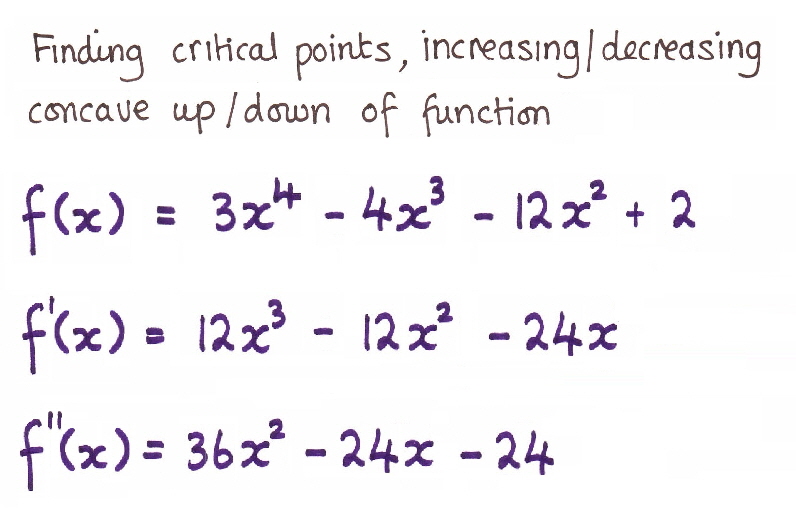 Finding critical points, increasing/decreasing
concave up/down of function
f(x) = 3x⁴ - 4x³ - 12x² + 2
f'(x) = 12x³ - 12x² - 24x
f"(x) = 36x² - 24x - 24